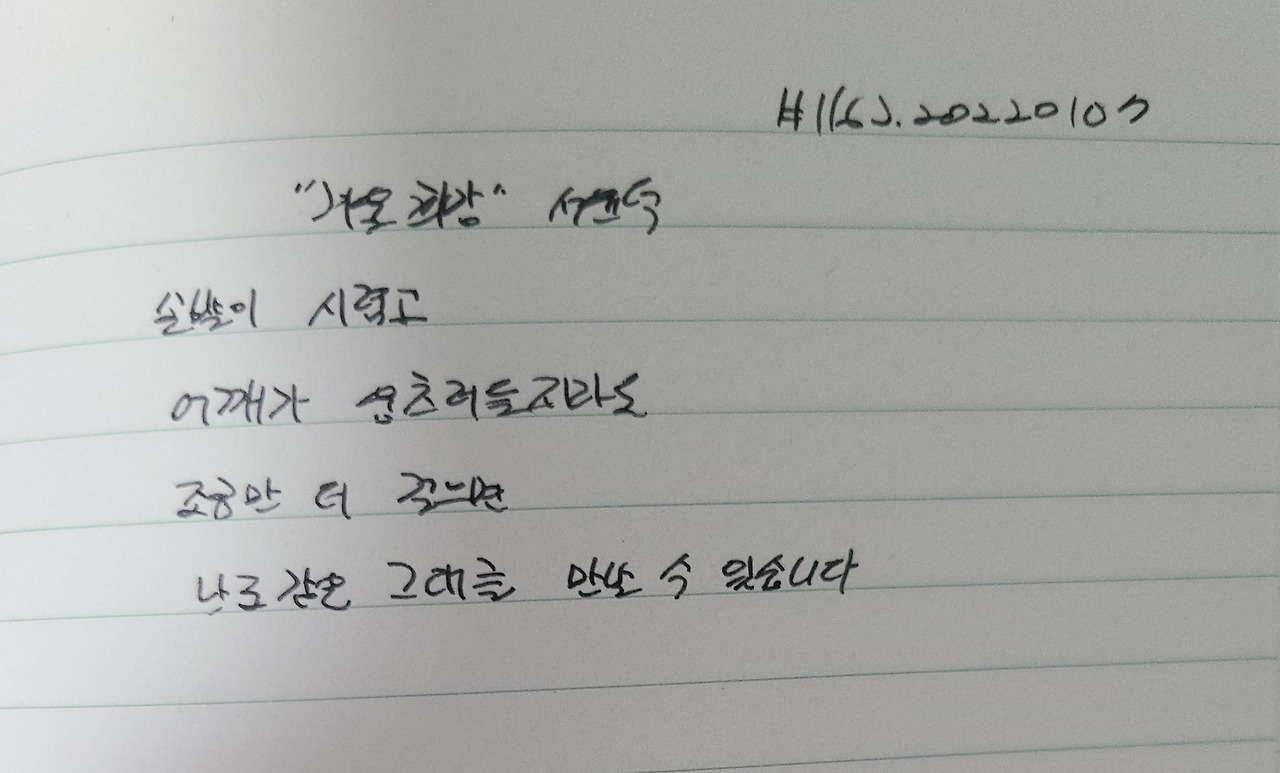 20220107
"겨울 희망" 서윤덕
손발이 시렵고
어깨가 움츠러들지라도
조금만 더 걸으면
난로 같은 그대를 만날 수 있습니다